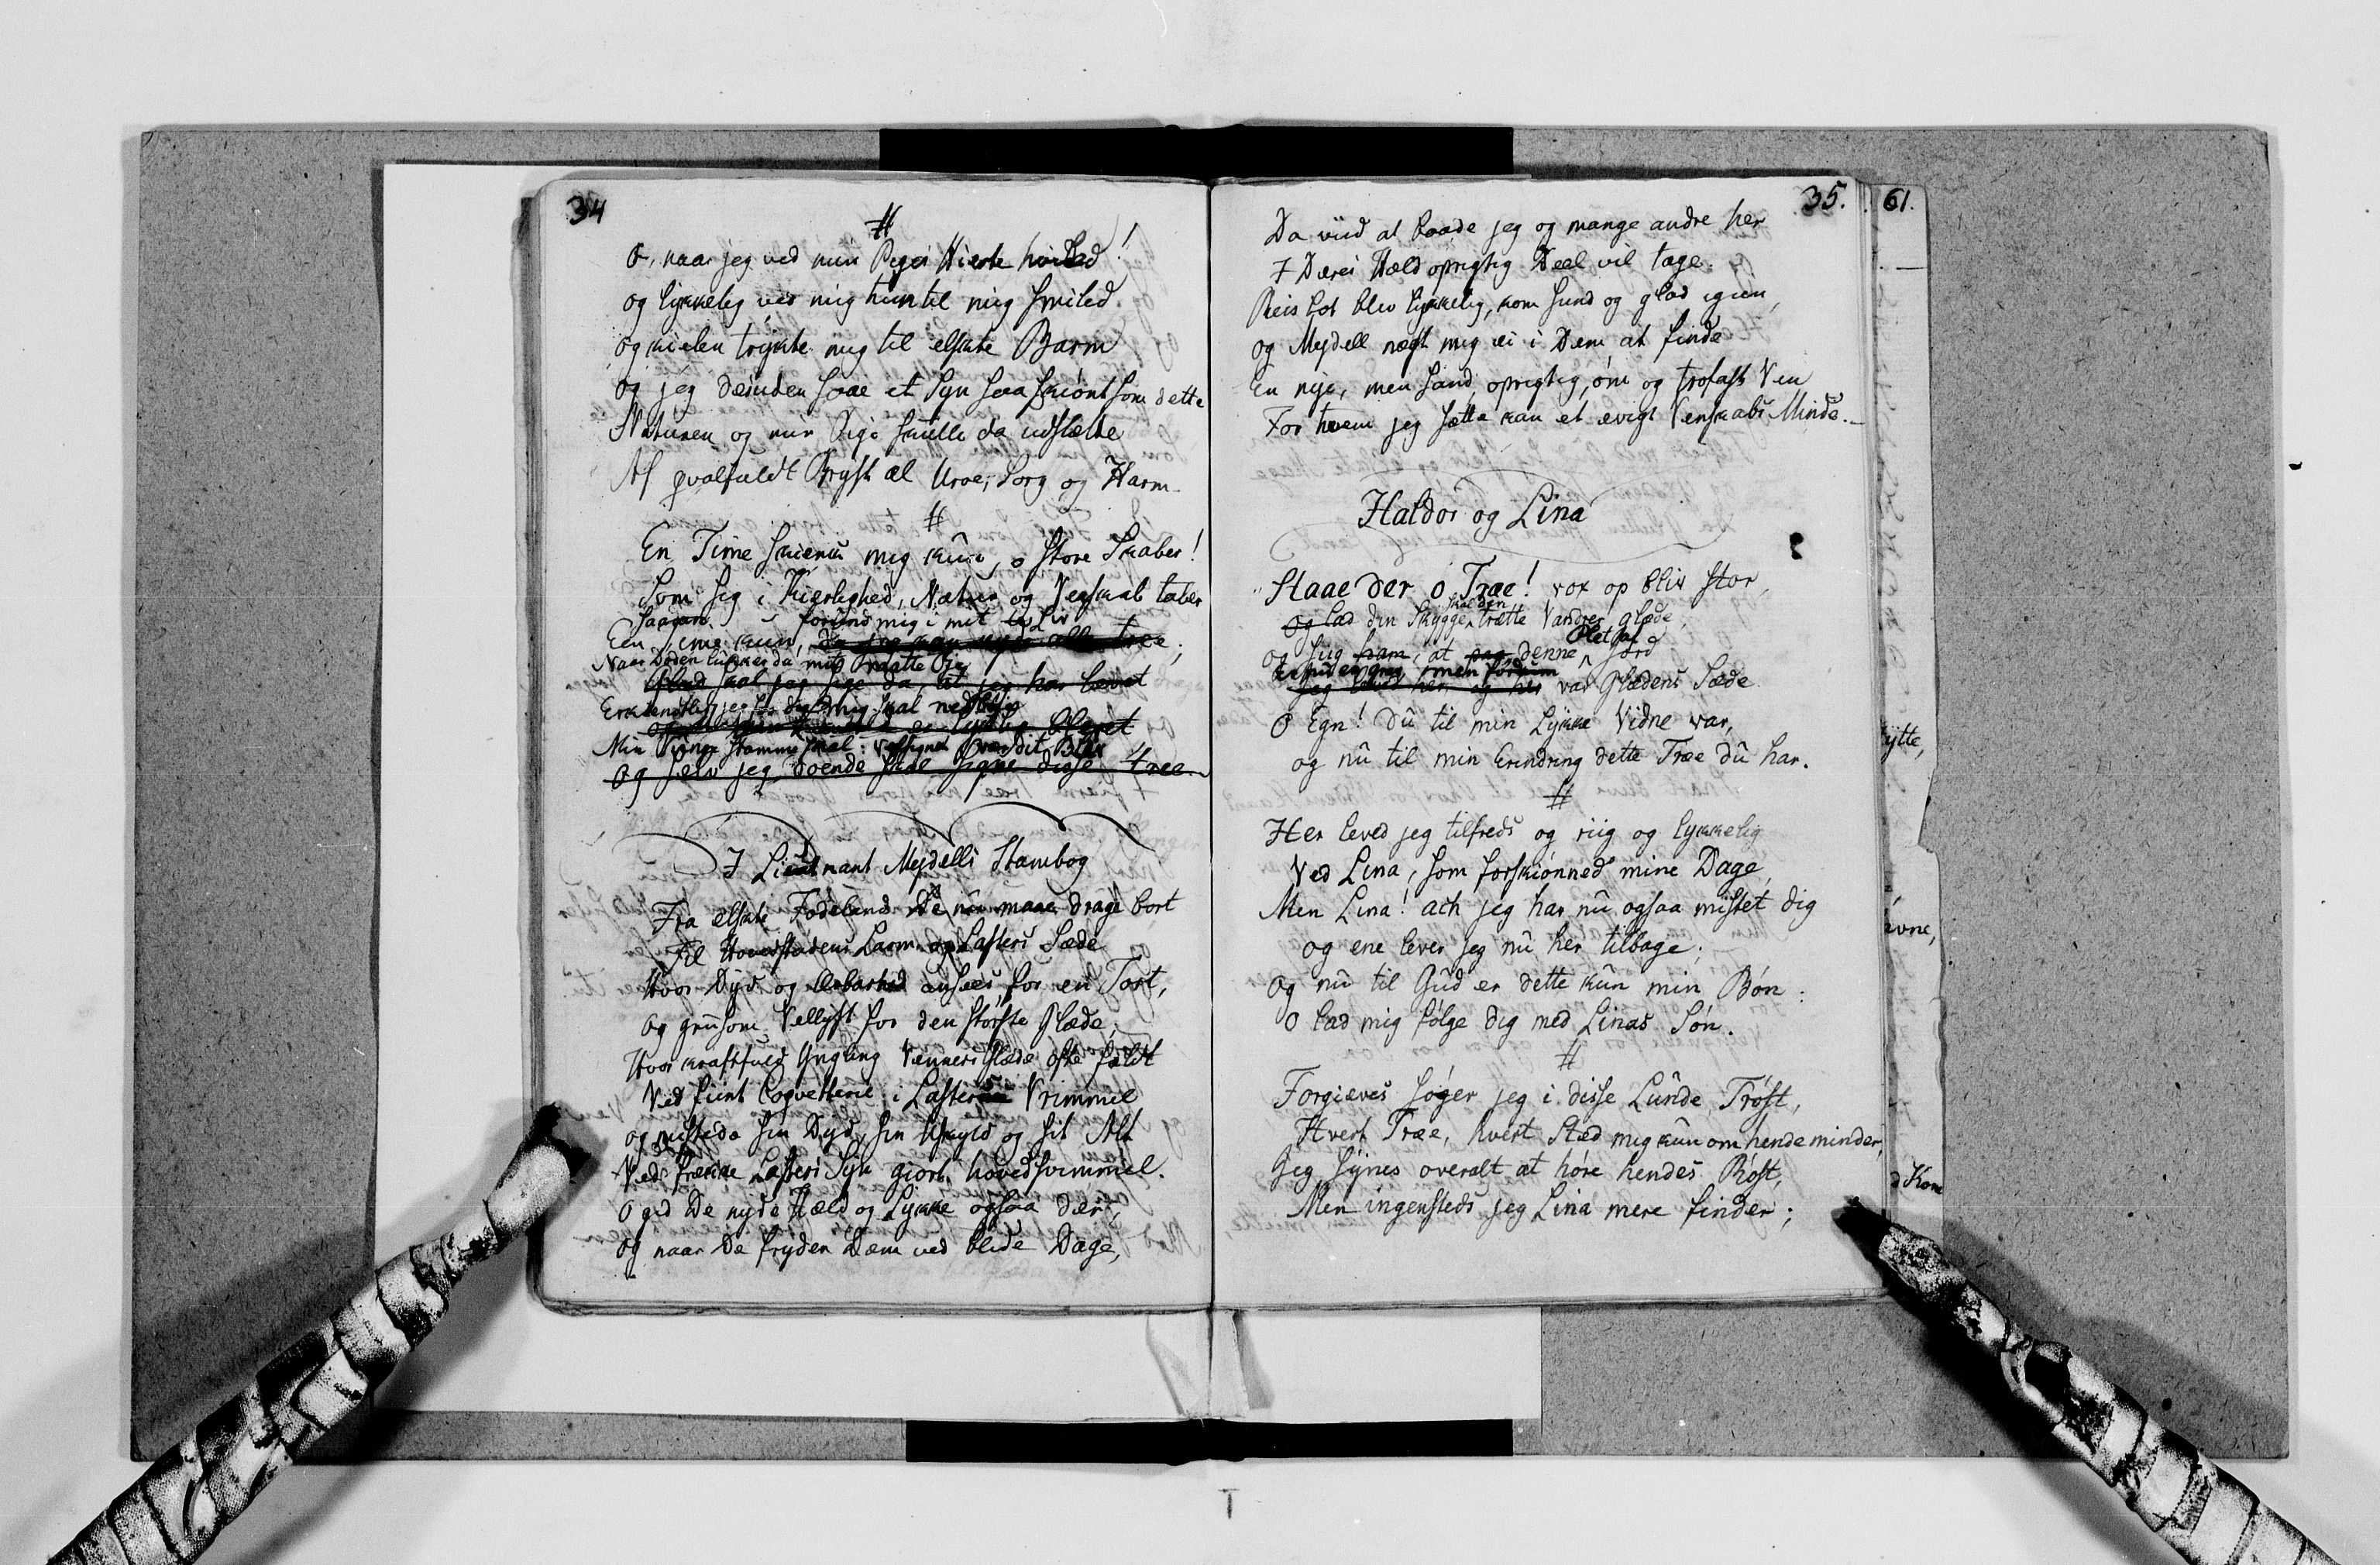 34
#
O, naar jeg ved min Piges Hierte hviiled!
og lykkelig ved mig hun til mig smiled
og kielen trykte mig til elskte Barm
og jeg desuden saae et Syn saa skiønt som dette
Naturen og min Pige skulle da udslette
Af qvalfuldt Bryst al Uroe, Sorg og Harm.
#
En Time skienk mig kun, o store Skaber!
Som sig i Kierlighed, Natur og Venskab taber
Saadan forund mig i mit Liv
Een Time kun, da jeg kan nyde alle tree;
Naar Døden lukker da mit matte Øje
Glad skal jeg sige da, at jeg har levet
Erkiendtlig jeg for dig mig skal nedbøje
Min Tunge stamme skal: velsignet være dit Bliv
og selv jeg døende skal signe disse tree.
I Lieutnant Mejdells Stambog
Fra elskte Fødeland De nu maae drage bort
Til Hovedstadens Larm og Lasters Sæde
Hvor Dyd og Ærbarhed ansees for en Tort,
og grusom Vellyst for den største Glæde
Hvor kraftfuld Yngling Venners Glæde ofte faldt
Ved fiint Coqvetterie i Lasters Vrimmel
og mistede sin Dyd, sin Uskyld og sit Alt
Ved frække Lasters Syn giort hovedsvimmel.
O gid De nyde Held og Lykke ogsaa der,
og naar De fryder Dem ved blide Dage,
35.
Da viid at baade jeg og mange andre her
I Deres Held oprigtig Deel vil tage.
Reis bort blev lykkelig, kom sund og glad igien,
og Mejdell nægt mig ei i Dem at finde
En nye, men sand, oprigtig, øm og trofast Ven
For hvem jeg sætte kan et evigt Venskabs Minde.
Haldor og Lina
Staae der o Træe! vox op bliv stor,
skal den
og lad din Skygge trætte Vandrer glæde,
Plet Jor
og siig ham, at paa denne Jord
jeg leved her, og her var Glædens Sæde
O Egn! Du til min Lykke Vidne var,
og nu til min Erindring dette Træe du har.
#
Her leved jeg tilfreds og riig og lykkelig
Ved Lina, som forskiønned mine Dage,
Men Lina! ach jeg har nu ogsaa mistet dig
og ene lever jeg nu her tilbage;
Og nu til Gud er dette kun min Bøn:
O lad mig følge dig med Linas Søn.
#
Forgieves søger jeg i disse Lunde Trøst,
Hvert Træe, hvert Sted mig kun om hende minder,
Jeg synes overalt at høre hendes Røst,
Men ingensteds jeg Lina mere finder;
61.
ytte,
ivne,
d Kom